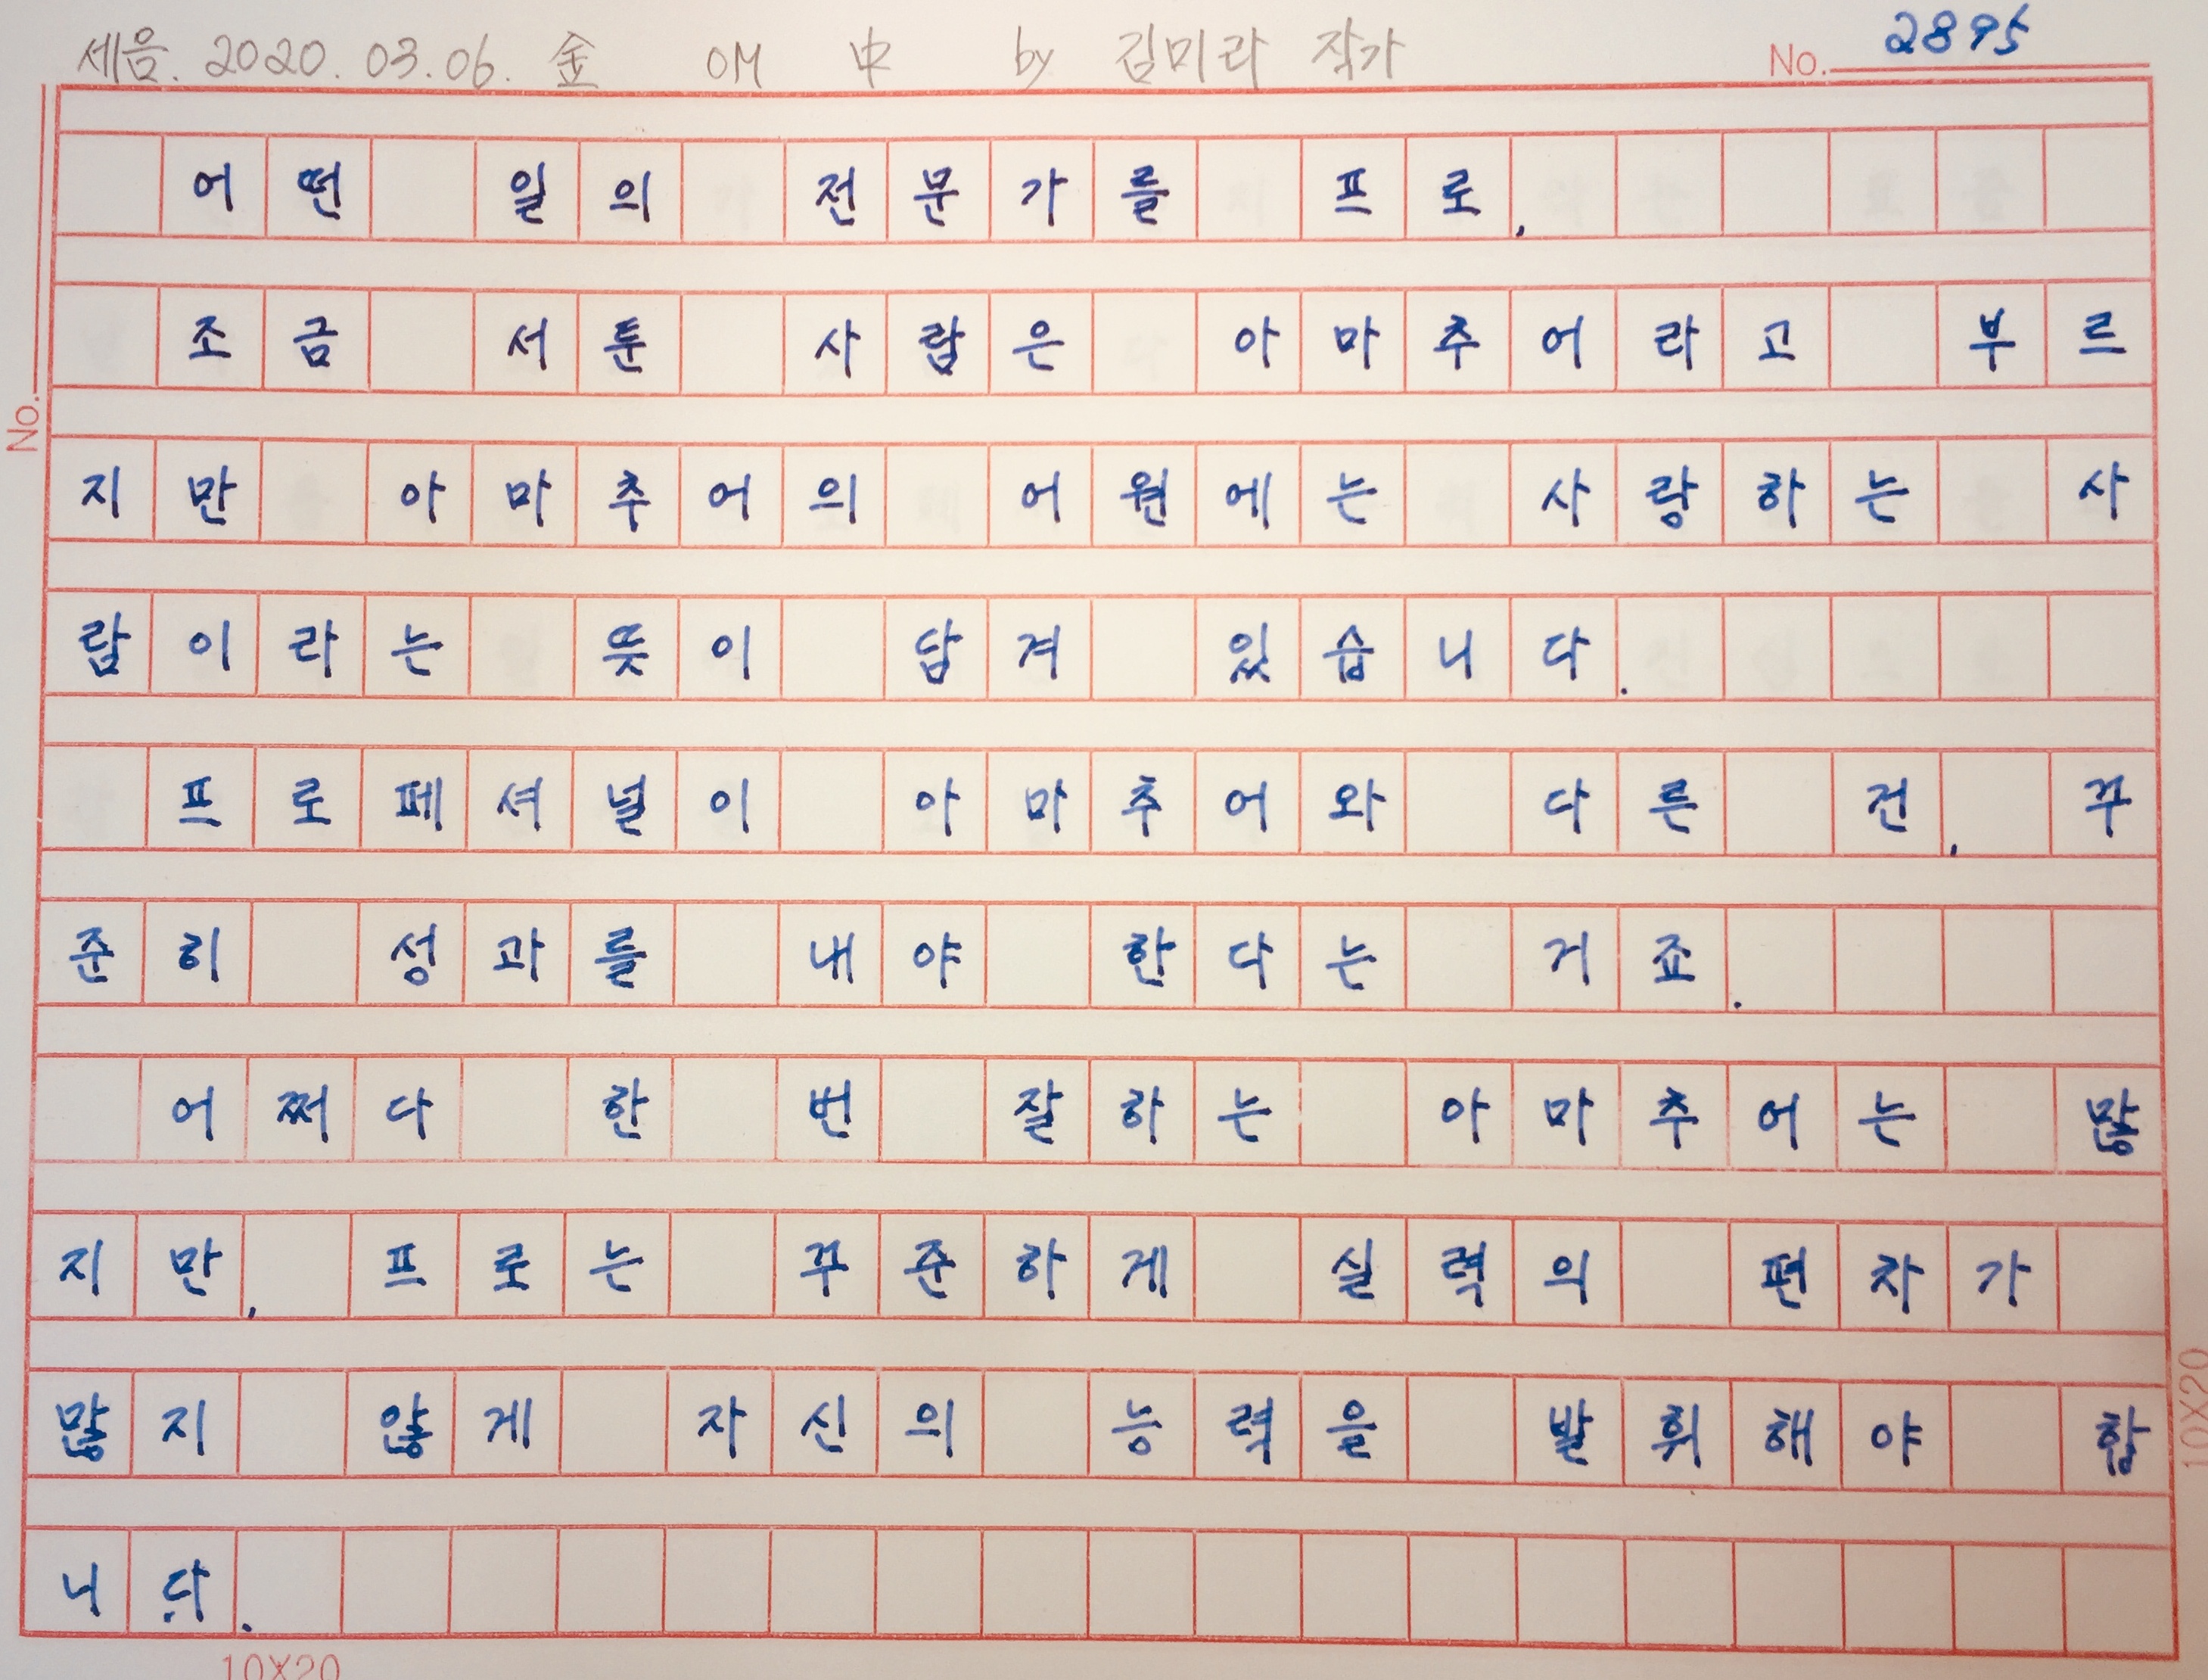 세음. 2020. 03. 06. 金 OM 中 by 김미라 작가
No. 2895
어떤 일의 전문가를 프로,
조금 서툰 사람은 아마추어라고 부르
지만 아마추어의 어원에는 사랑하는 사
람이라는 뜻이 담겨 있습니다.
프로페셔널이 아마추어와 다른 건, 꾸
준히 성과를 내야 한다는 거죠.
어쩌다 한 번 잘하는 아마추어는 많
지만, 프로는 꾸준하게 실력의 편차가
많지 않게 자신의 능력을 발휘해야 합
니다.
No.
10X20
10X20